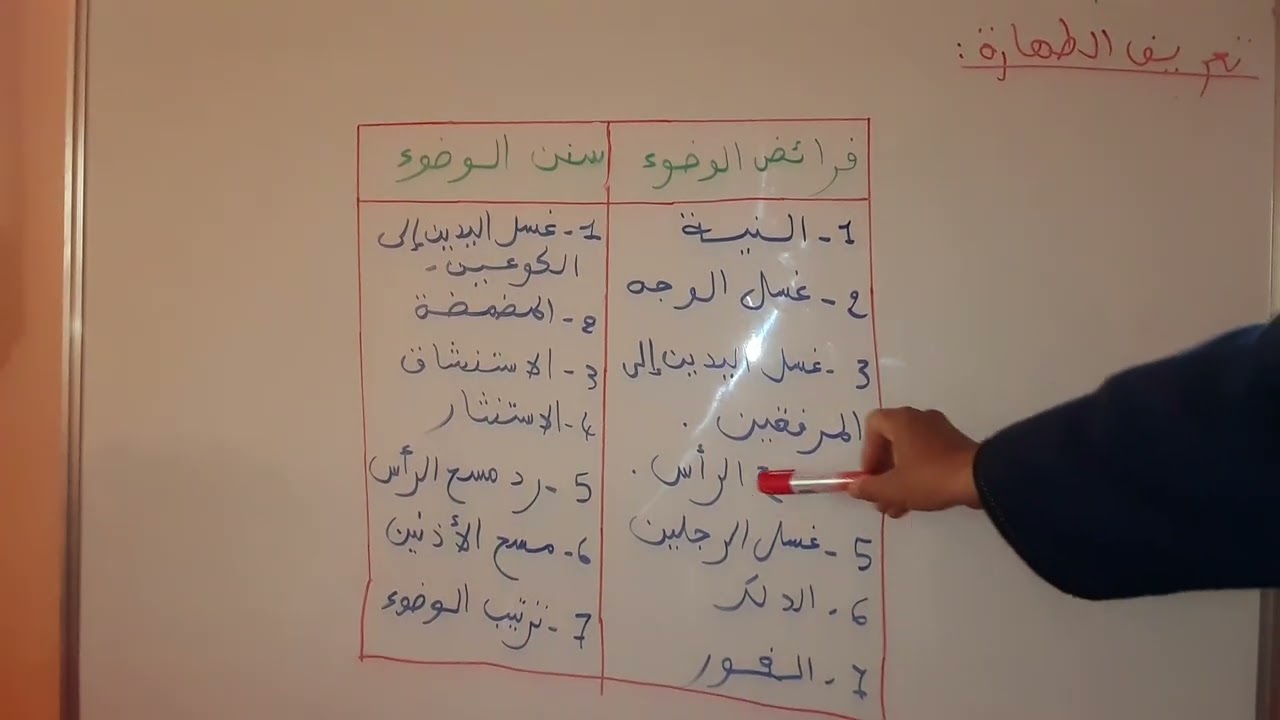 تعريف الطهارة:
فرائض الوضوء
1- النية
2- غسل الوجه
3- غسل اليدين إلى
المرفقين .
الرأس .
5- غسل الرجلين
6- الدلك
7- الفور
سنن الوضوء
1- غسل اليدين إلى
الكوعين-
2- المضمضة
3- الاستنشاق
4- الاستنثار
5- رد مسح الرأس
6- مسح الأذنين
7- ترتيب الوضوء